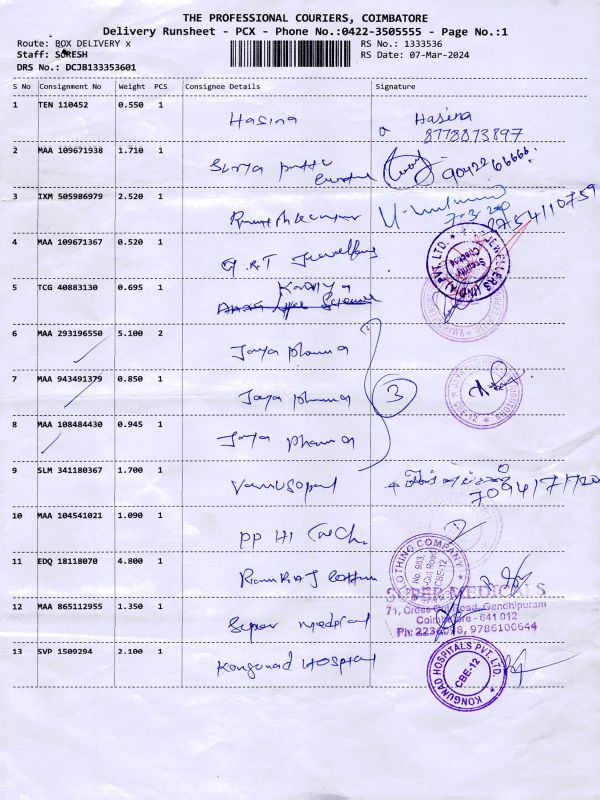 THE PROFESSIONAL COURIERS, COIMBATORE
Delivery Runsheet - PCX - Phone No.:0422-3505555 - Page No.:1
Route: BOX DELIVERY x
RS No.: 1333536
Staff: SURESH
RS Date: 07-Mar-2024
DRS No.: DCJB133353601
S No Consignment No Weight PCS Consignee Details Signature
1 TEN 110452 0.550 1 Hasina Hasina
8778873897
2 MAA 109671938 1.710 1 Surya 9042266666
3 IXM 505986979 2.520 1 8754110759
4 MAA 109671367 0.520 1 G.R.T Jewellery
JEWELLERS (INDIA) PVT. LTD.
Security
Checked
5 TCG 40883130 0.695 1
6 MAA 293196550 5.100 2 Jaya pharma
7 MAA 943491379 0.850 1 Jaya pharma 3
CBE-12
8 MAA 108484430 0.945 1 Jaya pharma
9 SLM 341180367 1.700 1 Venusopal
10 MAA 104541021 1.090 1 PP Hi Tech.
CLOTHING COMPANY
CBE-12
11 EDQ 18118070 4.800 1 Ramraj cotton
SUPER MEDICALS
71, Cross Cut Road, Gandhipuram
Coimbatore - 641 012
12 MAA 865112955 1.350 1 Super medical
9786100644
13 SVP 1509294 2.100 1 Kongunad Hospital
KONGUNAD HOSPITALS PVT. LTD.
CBE-12